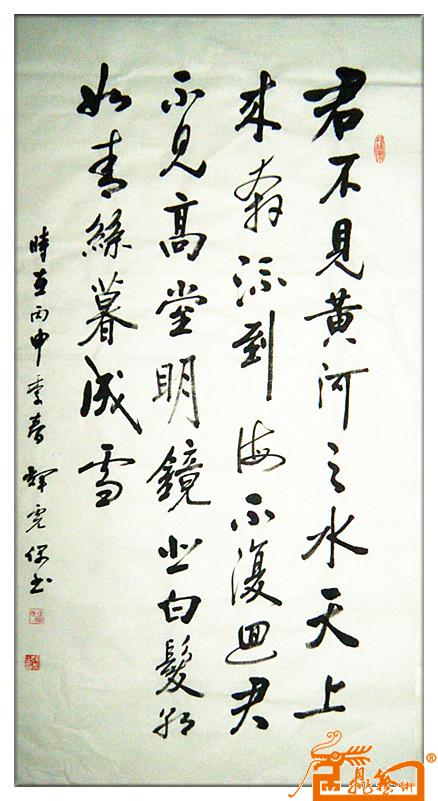 君不見黄河之水天上
来奔流到海不復迴君
不見高堂明鏡悲白髮朝
如青絲暮成雪
時在丙申季春 书